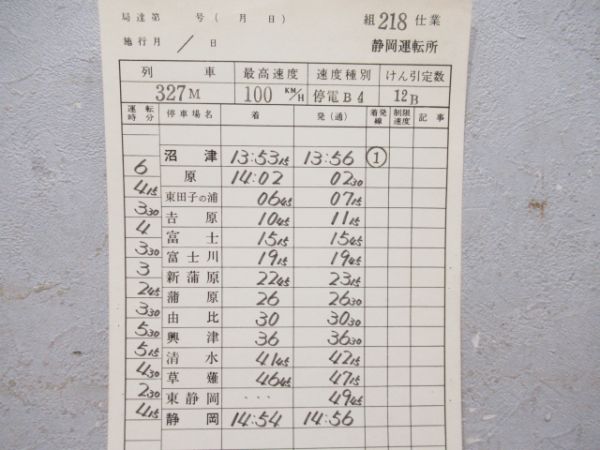 局達第 号( 月 日) 組 218 仕業
施行月 / 日 静岡運転所
列 車 最高速度 速度種別 けん引定数
327M 100 KM/H 停電B4 12B
運転時分 停車場名 着 発(通) 着発線 制限速度 記事
沼津 13:53 15 13:56 ①
6
原 14:02 02 30
4 15
東田子の浦 06 45 07 15
3 30
吉原 10 45 11 15
4
富士 15 15 15 45
3 30
富士川 19 15 19 45
3
新蒲原 22 45 23 15
2 45
蒲原 26 26 30
3 30
由比 30 30 30
5 30
興津 36 36 30
5 15
清水 41 45 42 15
4 30
草薙 46 45 47 15
2 30
東静岡 ... 49 45
4 15
静岡 14:54 14:56